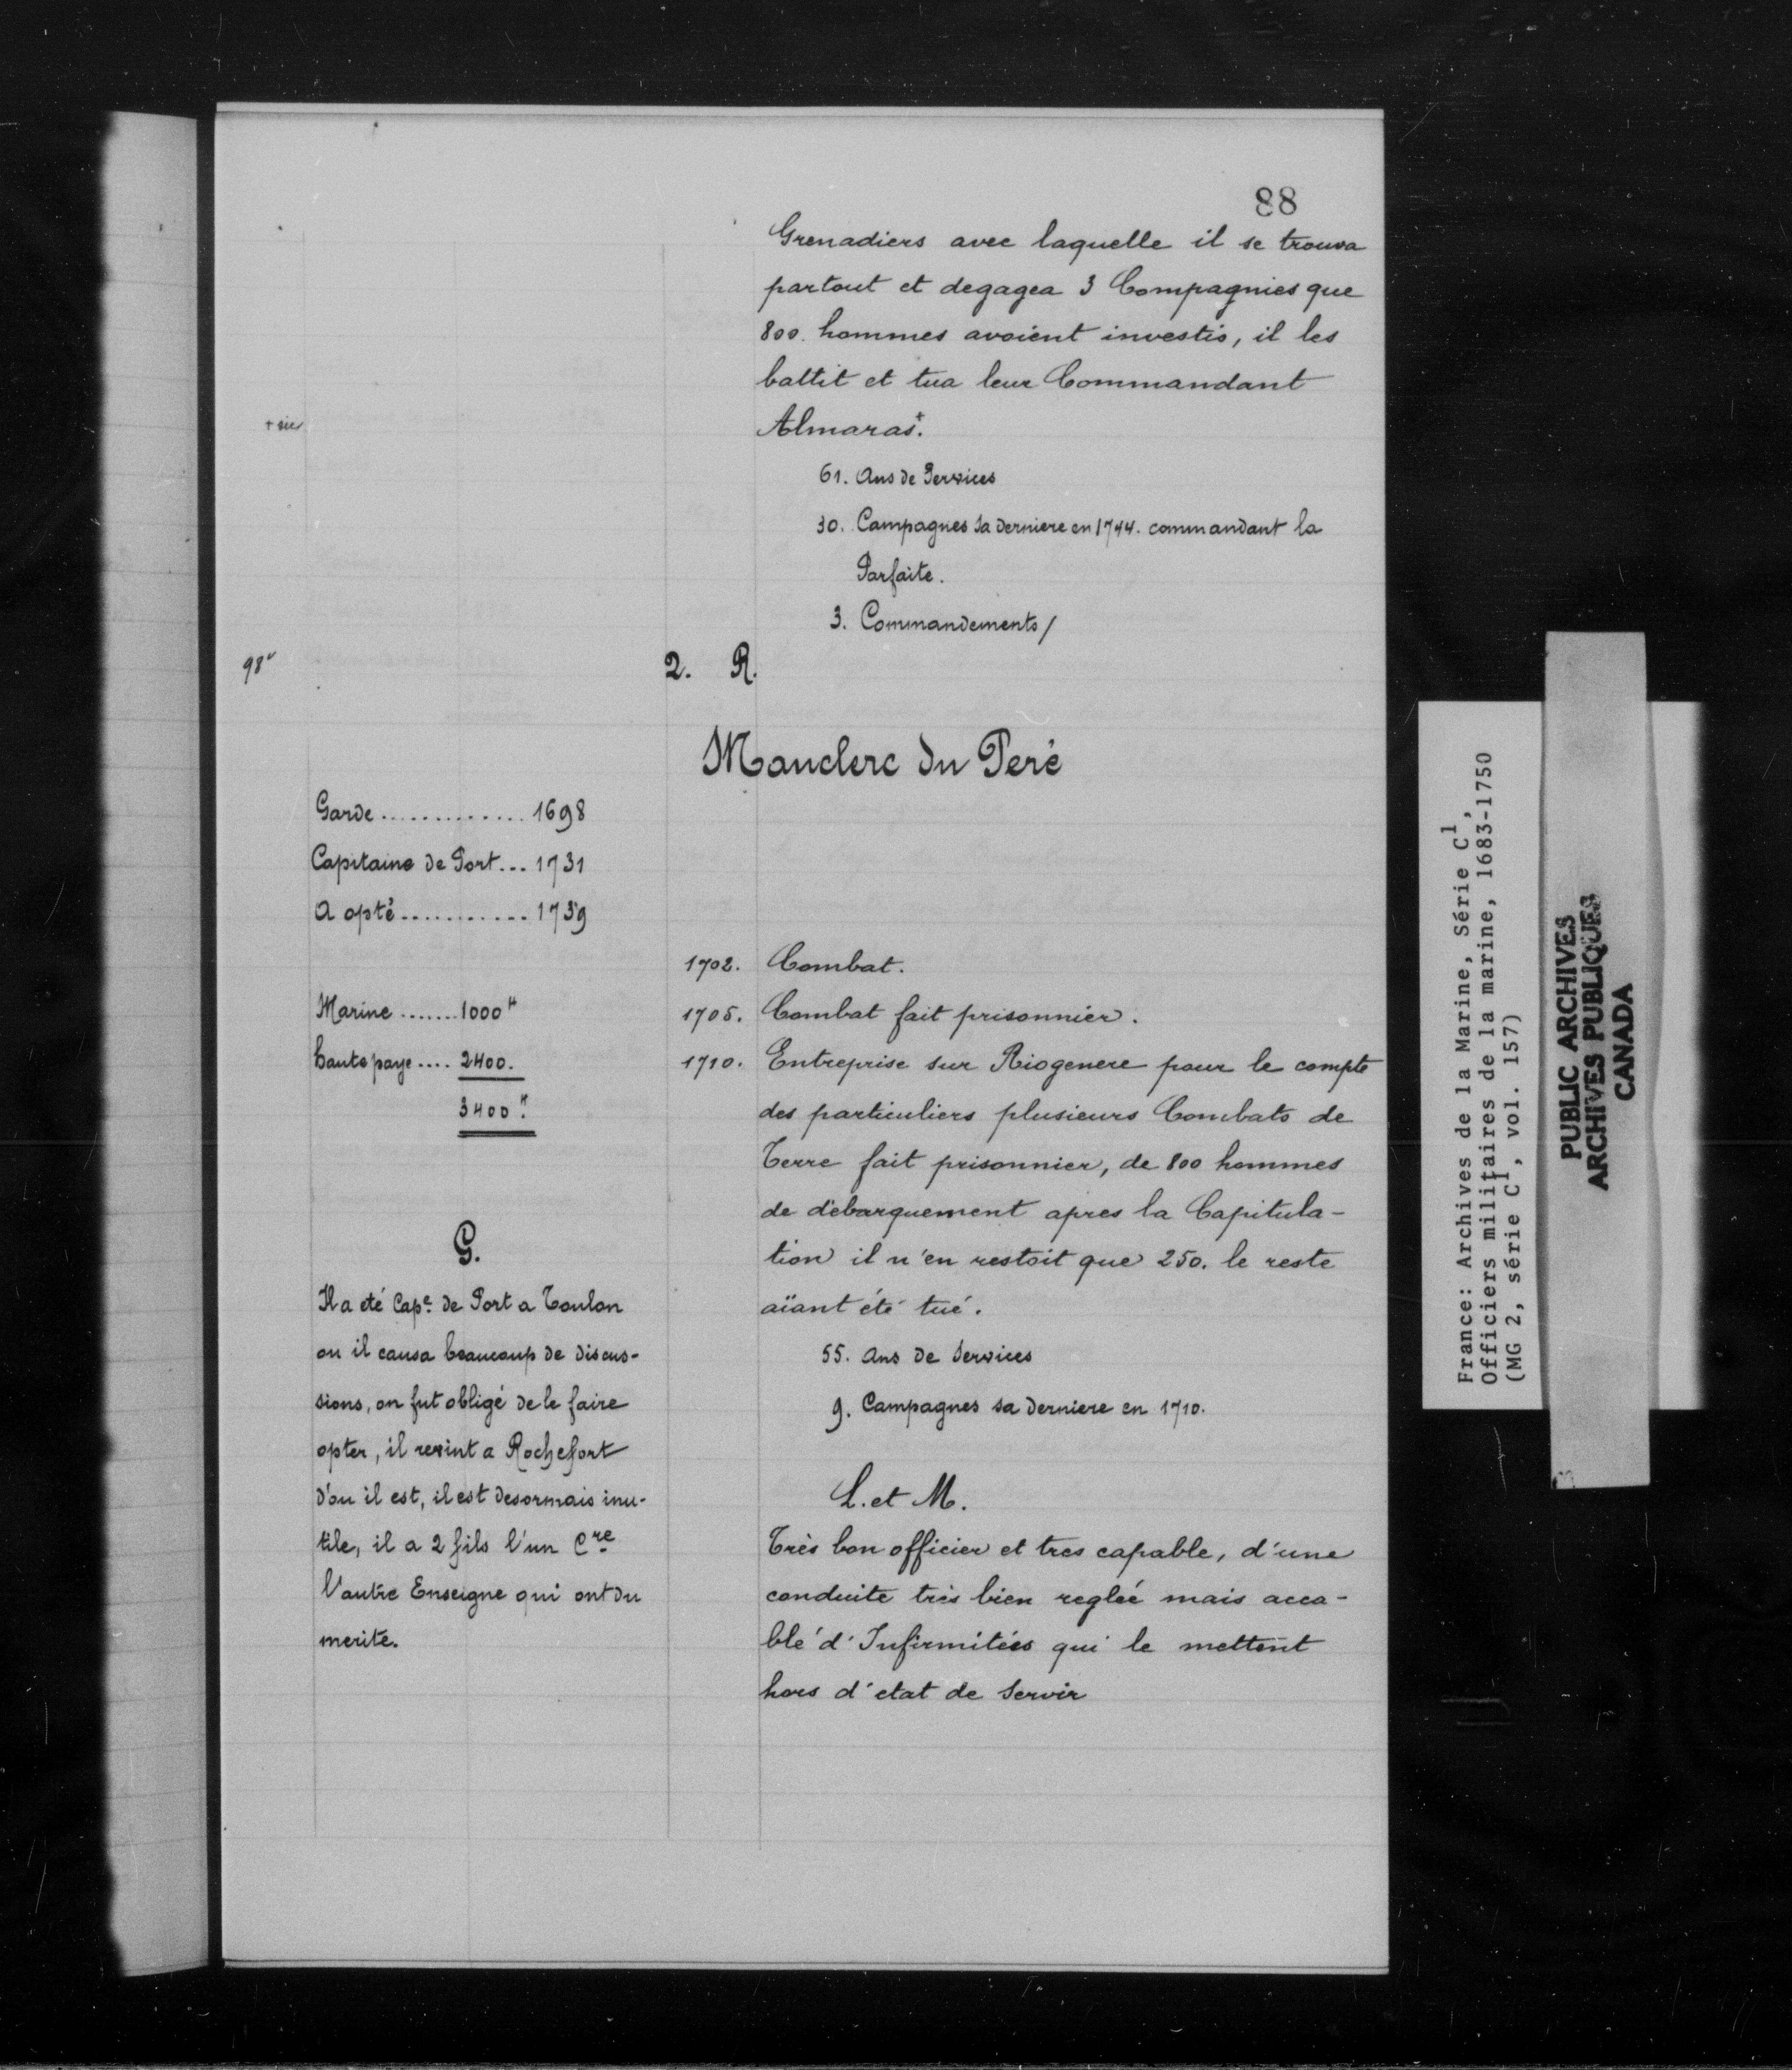 88
Grenadiers avec laquelle il se trouva
partout et degagea 3 Compagnies que
800. hommes avoient investis, il les
battit et tua leur Commandant
+ sic
Almaras+.
61. Ans de Services
30. Campagnes sa derniere en 1744. commandant la
Parfaite.
3. Commandements/
98v
2. R.
Manclerc du Peré
Garde.............. 1698
Capitaine de Port... 1731
A opté............ 1739
Marine ....... 1000#
haute paye .... 2400.
3400#.
G.
Il a eté Cape. de Port a Toulon
ou il causa beaucoup de discus-
sions, on fut obligé de le faire
opter, il revint a Rochefort
d'ou il est, il est desormais inu-
tile, il a 2 fils l'un Cre
l'autre Enseigne qui ont du
merite.
1702. Combat.
1705. Combat fait prisonnier.
1710. Entreprise sur Riogenere pour le compte
des particuliers plusieurs Combats de
Terre fait prisonnier, de 800 hommes
de débarquement apres la Capitula-
tion il n'en restoit que 250. le reste
aïant été tué.
55. Ans de Services
9. Campagnes sa derniere en 1710.
L. et M.
Très bon officier et tres capable, d'une
conduite très bien regleé mais acca-
blé d'Infirmitées qui le mettent
hors d'etat de Servir
France: Archives de la Marine, Série C1,
Officiers militaires de la marine, 1683-1750
(MG 2, série C1, vol. 157)
PUBLIC ARCHIVES
ARCHIVES PUBLIQUES
CANADA